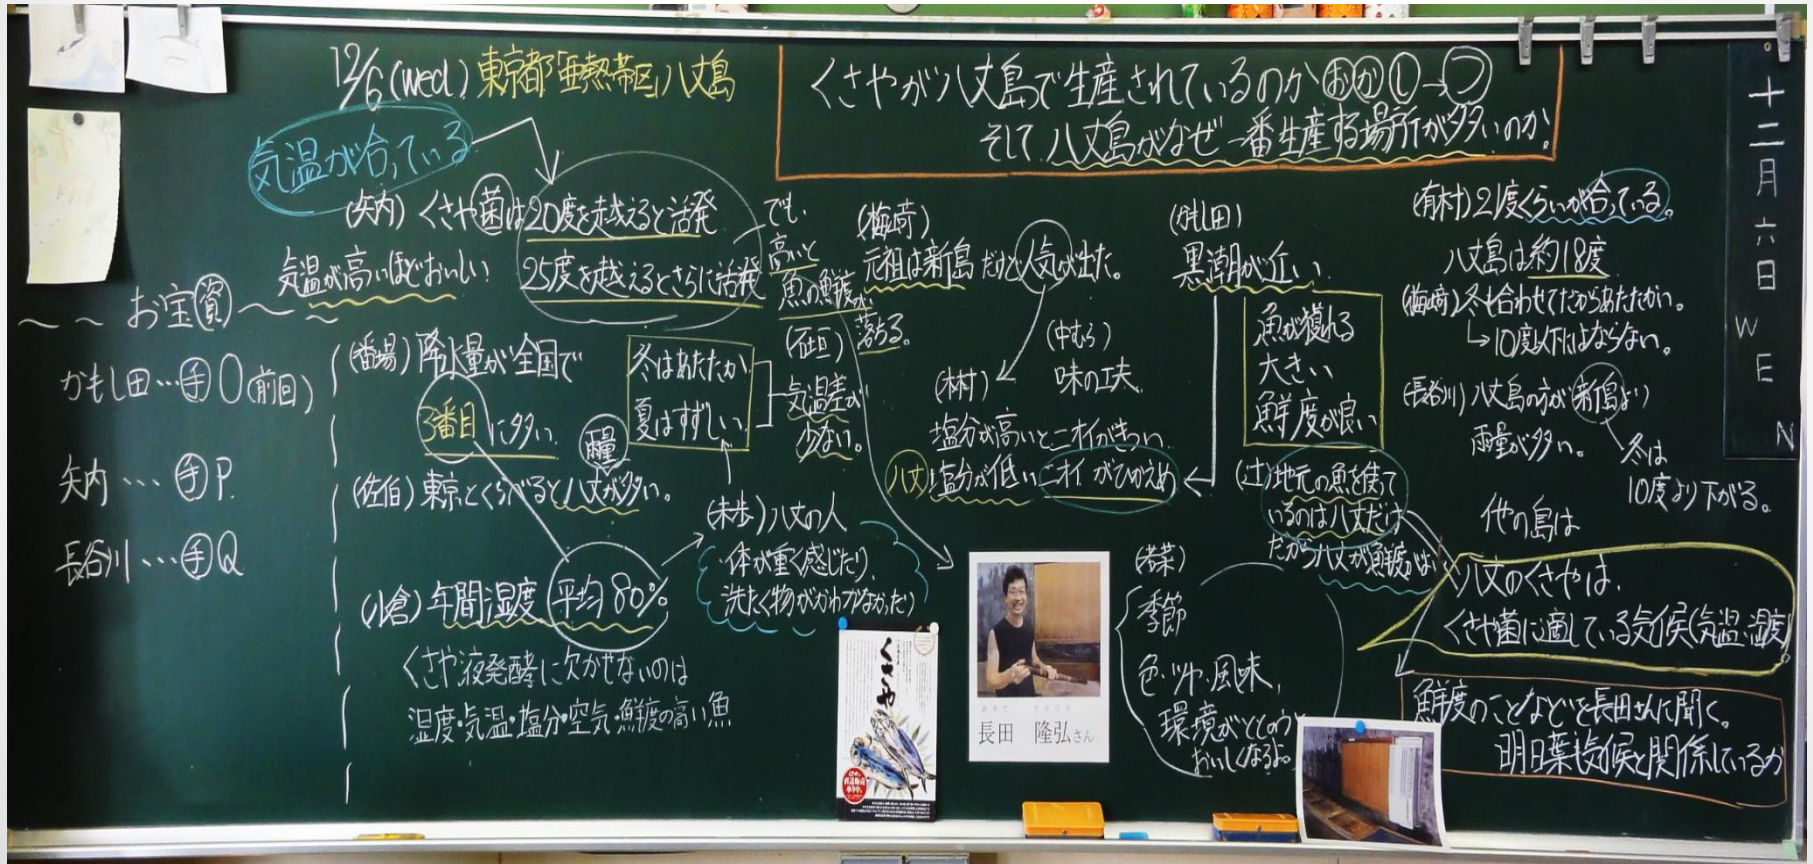 12/6(wed.)東京都「亜熱帯区」八丈島
くさやが八丈島で生産されているのか おがし→つ
そして八丈島がなぜ一番生産する場所が多いのか。
十二月六日
WEN
気温が合っている
(矢内)くさや菌は20度を越えると活発
25度を越えるとさらに活発
気温が高いほどおいしい
でも、
高いと
魚の鮮度が
落ちる。
〜〜お宝資〜〜
かもし田…手〇(前回)
矢内…手P.
長谷川…手Q
(番場)降水量が全国で
3番目に多い.
雨量
(佐伯)東京とくらべると八丈が多い。
(小倉)年間湿度 平均80%
くさや液発酵に欠かせないのは
湿度・気温・塩分・空気・鮮度の高い魚
冬はあたたか
夏はすずしい
気温差が
少ない。
(未歩)八丈の人
・体が重く感じたり、
洗たく物がかわかなかったり
(梅崎)
元祖は新島だけど人気が出た。
(中むら)
味の工夫
(木村)
塩分が高いとニオイがきつい
八丈 塩分が低い ニオイがひかえめ
(かもし田)
黒潮が近い
魚が獲れる
大きい
鮮度が良い
(辻)地元の魚を使って
いるのは八丈だけ
だから八丈が鮮度はい
(若菜)
季節
色・ツヤ・風味、
環境がととのうと
おいしくなるよ。
(有村)21度くらいが合っている。
八丈島は約18度
(梅崎)冬も合わせてだからあたたかい。
→10度以下にはならない。
(長谷川)八丈島の方が新島より
雨量が多い。
冬は
10度より下がる。
他の島は
八丈のくさやは、
くさや菌に適している気候(気温、湿度)
鮮度のことなどを長田さんに聞く。
明日葉も気候と関係しているか
くさや
長田 隆弘さん